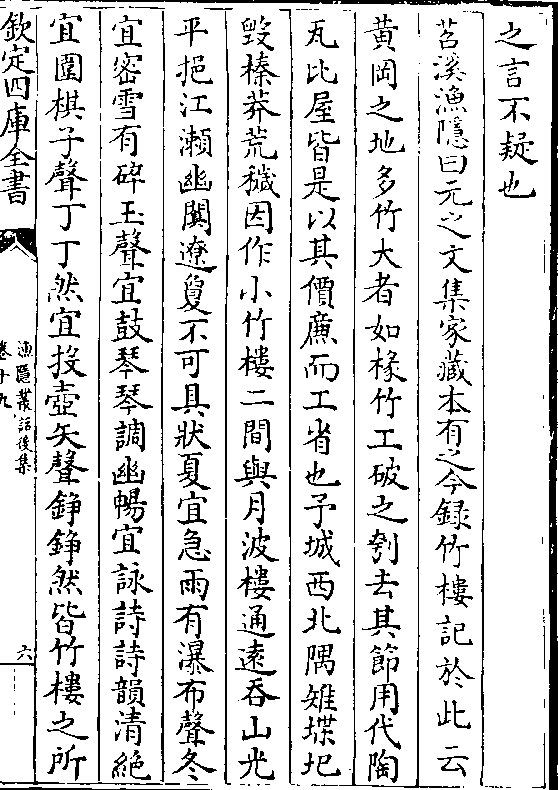 之言不疑也
苕溪漁隱曰元之文集家藏本有之今録竹樓記於此云
黄岡之地多竹大者如椽竹工破之刳去其節用代陶
瓦比屋皆是以其價㢘而工省也予城西北隅雉堞圮
毀榛莽荒穢因作小竹樓二間與月波樓通遠吞山光
平挹江瀬幽闃遼敻不可具狀夏宜急雨有瀑布聲冬
宜密雪有碎玉聲宜鼓琴琴調幽暢宜詠詩詩韻清絶
宜圍棋子聲丁丁然宜投壺矢聲錚錚然皆竹樓之所
欽定四庫全書
漁隱叢話後集
卷十九
六